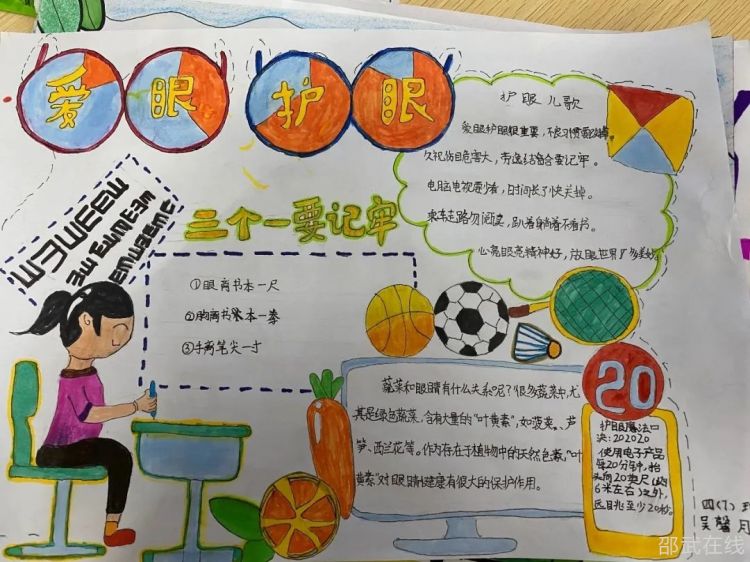 爱眼护眼
护眼儿歌
爱眼护眼很重要，不良习惯要改掉。
久视伤目危害大，劳逸结合要记牢。
电脑电视要少看，时间长了快关掉。
乘车走路勿阅读，趴着躺着不看书。
心亮眼亮精神好，放眼世界多美妙
三个一要记牢
①眼离书本一尺
②胸离书本一拳
③手离笔尖一寸
蔬菜和眼睛有什么关系呢？很多蔬菜中，尤
其是绿色蔬菜，含有大量的"叶黄素"，如菠菜、芦
笋、西兰花等。作为存在于植物中的天然色素，"叶
黄素"对眼睛健康有很大的保护作用。
20
护眼魔法口
决：202020
使用电子产品
每20分钟，抬
头向20英尺（约
6米左右）之外，
远眺至少20秒。
四（7）
吴馨月
邵武在线